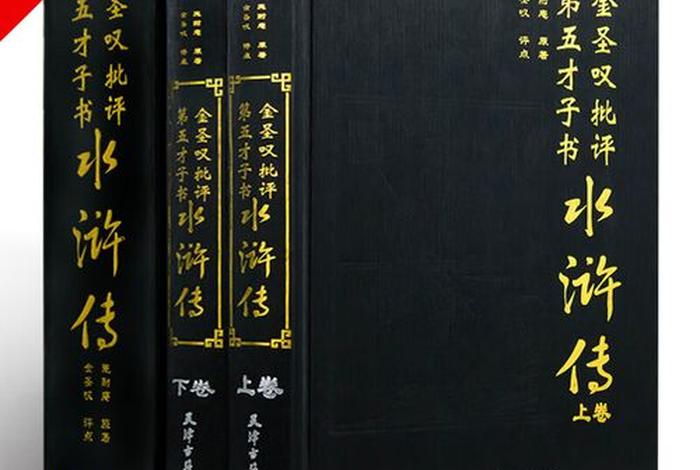 圣叹批评
五才子书
水浒传
施耐庵 原著
金圣叹 评点
施耐庵 原著
金圣叹 评点
金圣叹批评
第五才子书
水浒传
下卷
天津古籍
施耐庵 原著
金圣叹 评点
金圣叹批评
第五才子书
水浒传
上卷
天津古籍
庵 原著
叹 评点
金圣叹批评
第五才子书
水浒传
上卷